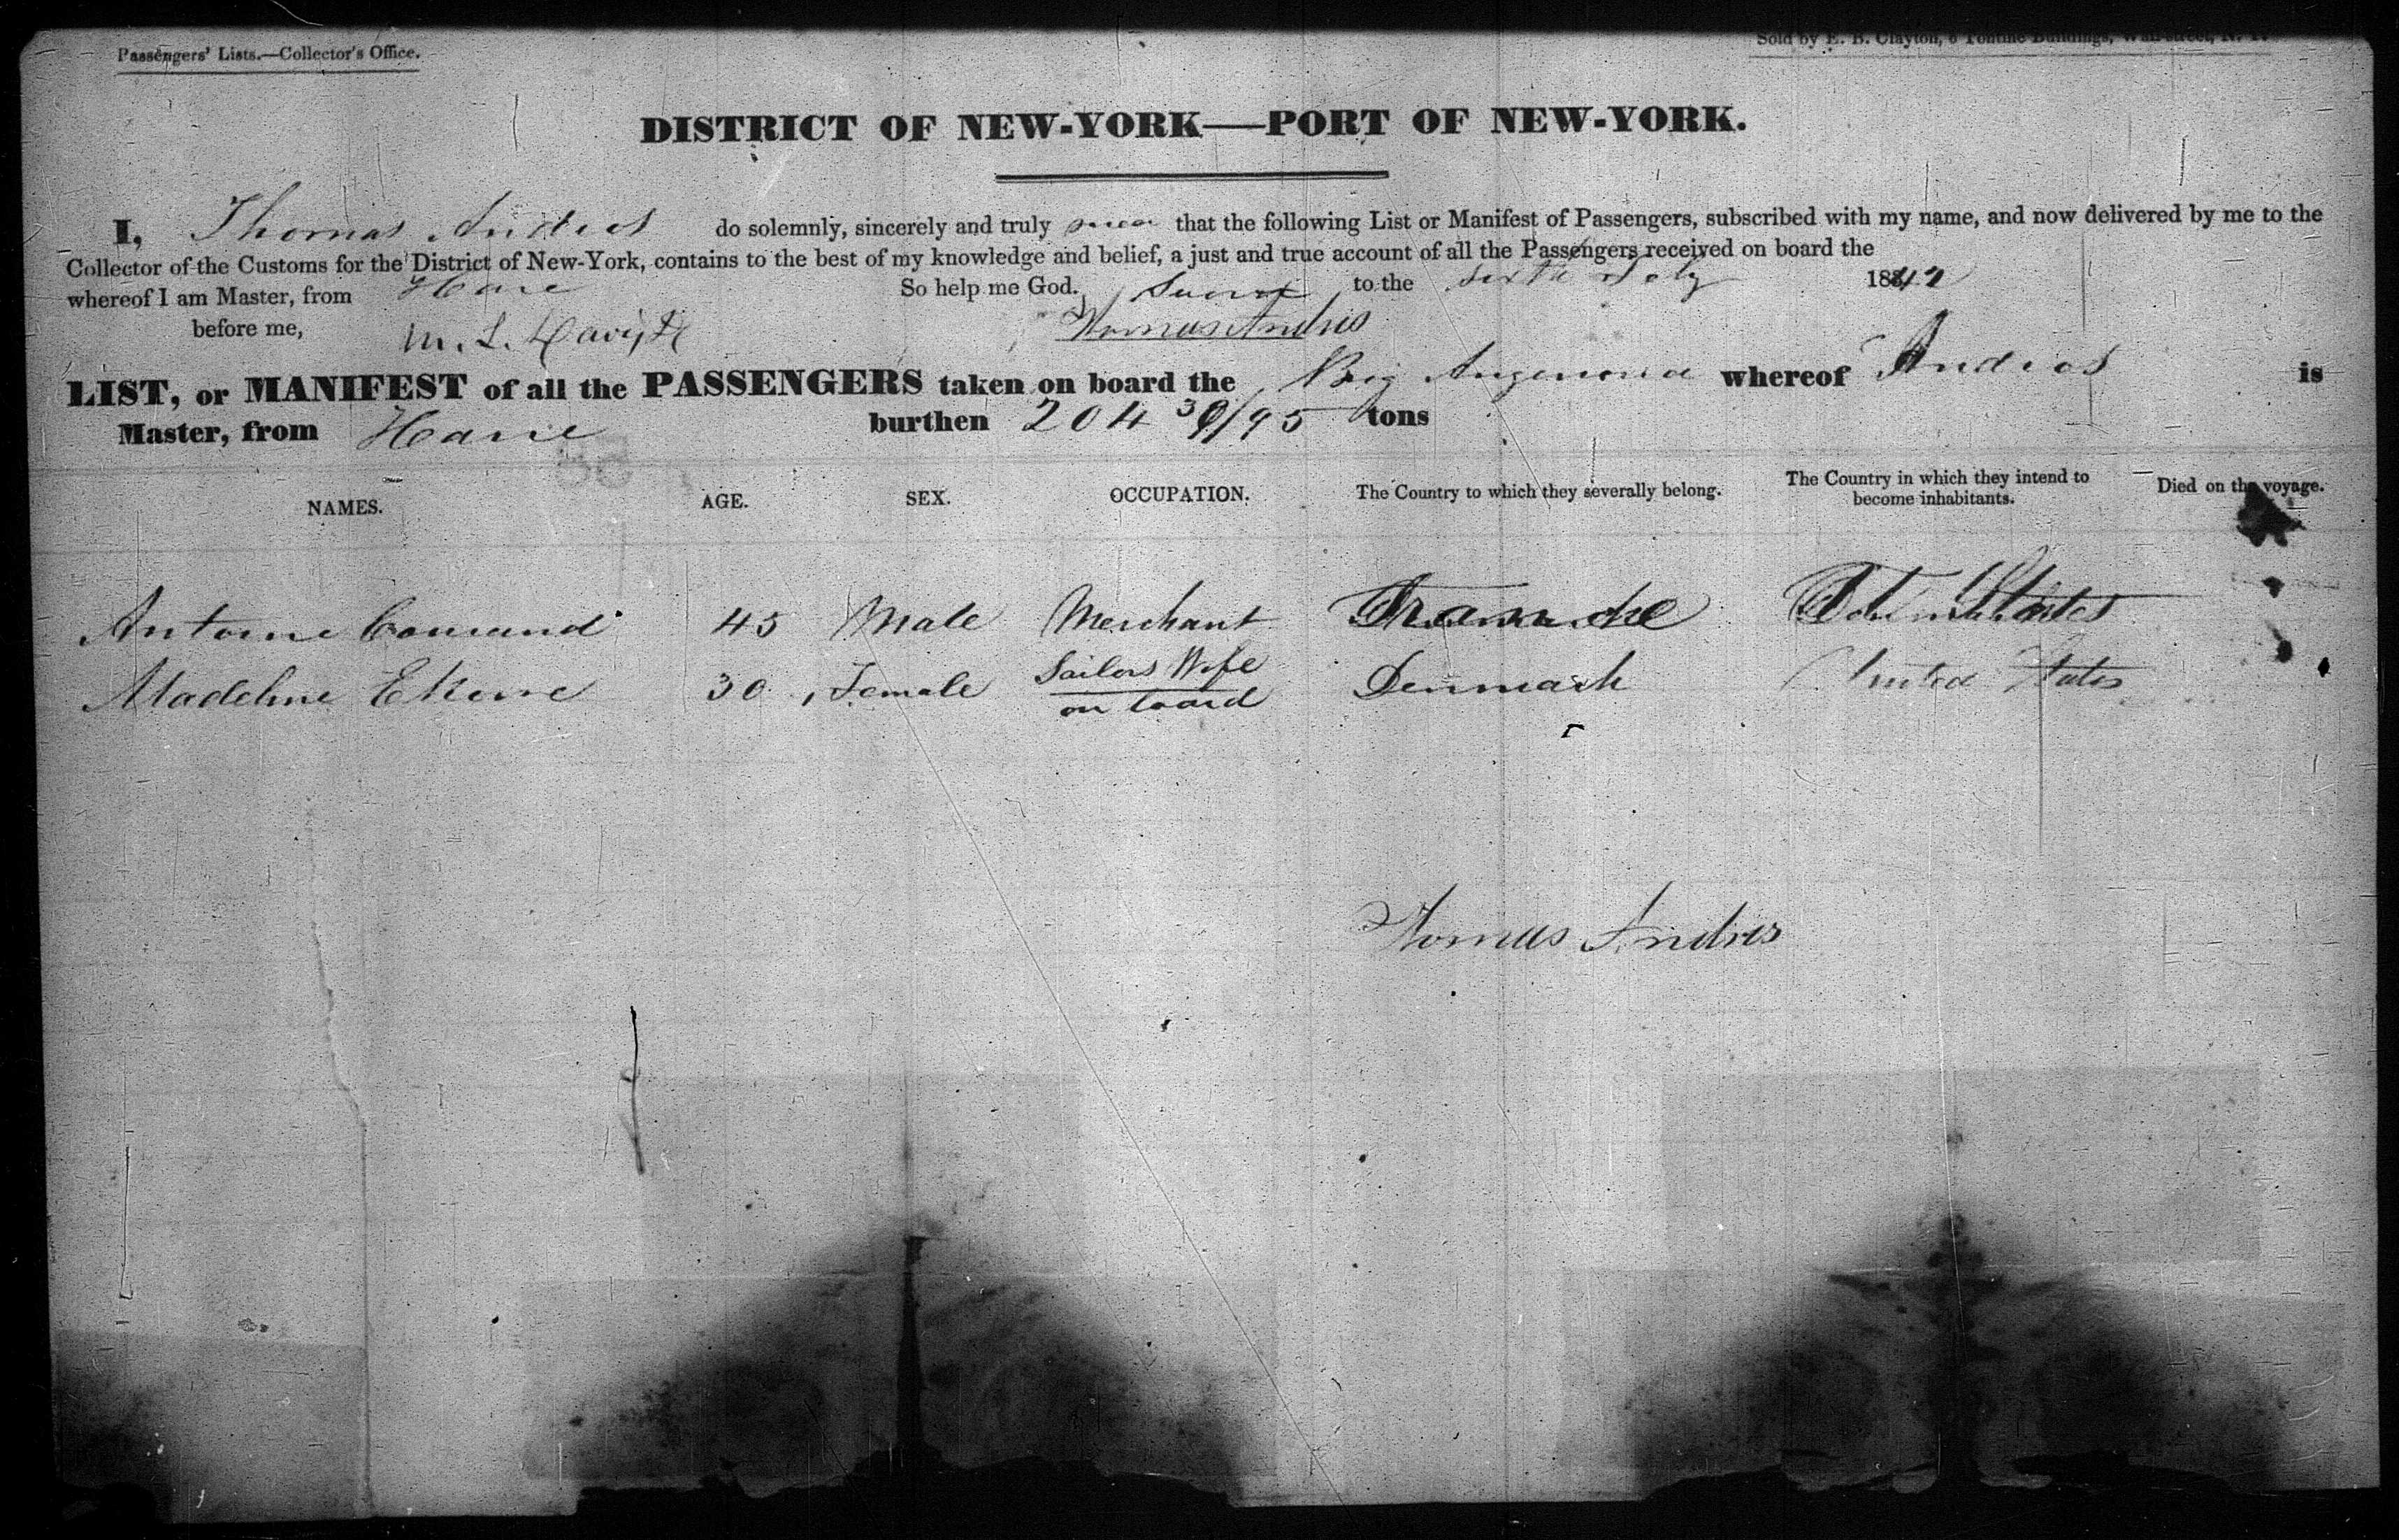 Passengers' Lists.—Collector's Office.
Sold by E. B. Clayton, 6 Tontine Buildings, Wall-street, N. Y.
DISTRICT OF NEW-YORK—PORT OF NEW-YORK.
I, Thomas Andres do solemnly, sincerely and truly swear that the following List or Manifest of Passengers, subscribed with my name, and now delivered by me to the
Collector of the Customs for the District of New-York, contains to the best of my knowledge and belief, a just and true account of all the Passengers received on board the
whereof I am Master, from Havre So help me God. Sworn to the sixth July 1842
before me, Thomas Andres
LIST, or MANIFEST of all the PASSENGERS taken on board the Brig whereof Andres is
Master, from Havre burthen 204 /95 tons
NAMES. AGE. SEX. OCCUPATION. The Country to which they severally belong. The Country in which they intend to become inhabitants. Died on the voyage.
Antoine 45 Male Merchant States
Madeline 30 Female Sailors Wife on board Denmark United States
Thomas Andres